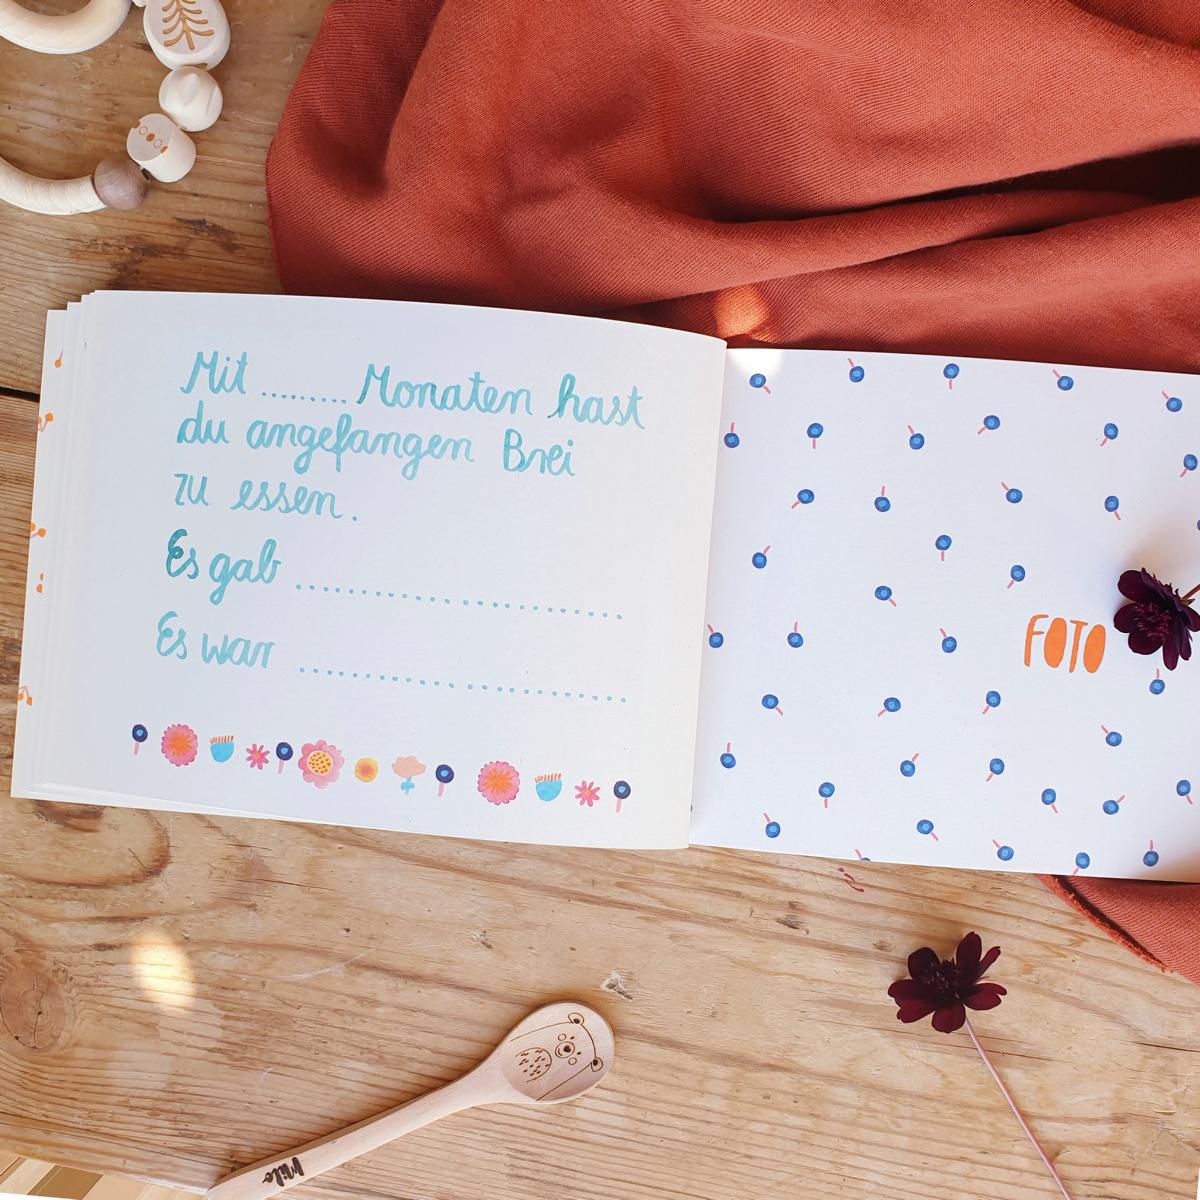 Mit ......... Monaten hast
du angefangen Brei
zu essen.
Es gab ..............................
Es war ..............................
FOTO
Milo